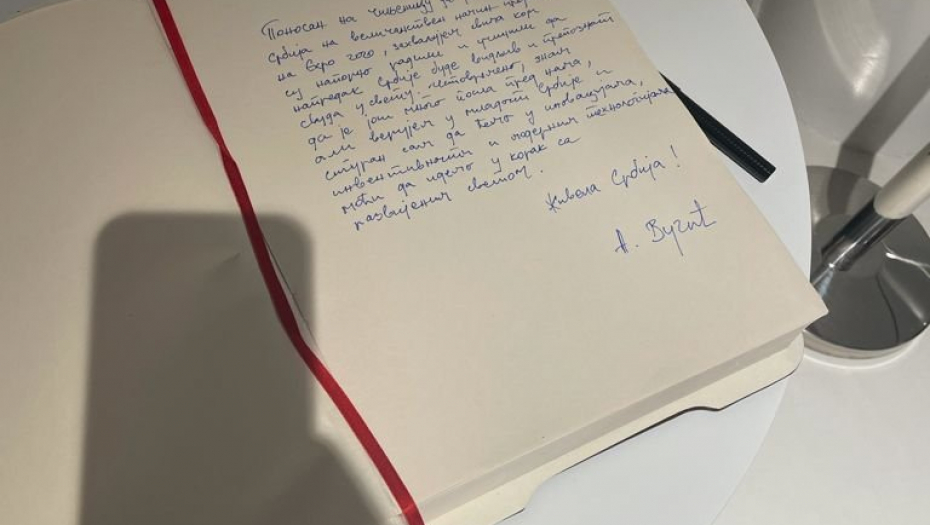 Поносан на чињеницу да је
Србија на величанствен начин
на Expo 2020, захваљујем свима који
су напорно радили и учинили да
напредак Србије буде видљив и препознат
свуда у свету. Истовремено, знам
да је још много посла пред нама,
али верујем у младост Србије и
сигуран сам да ћемо у иновацијама,
инвентивности и модерним технологијама
моћи да идемо у корак са
развијеним светом.
Живела Србија!
А. Вучић